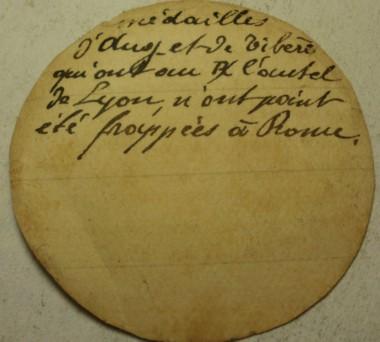 médailles
d'Aug. et de Tibère
qui ont au R l'autel
de Lyon, n'ont point
été frappées à Rome.